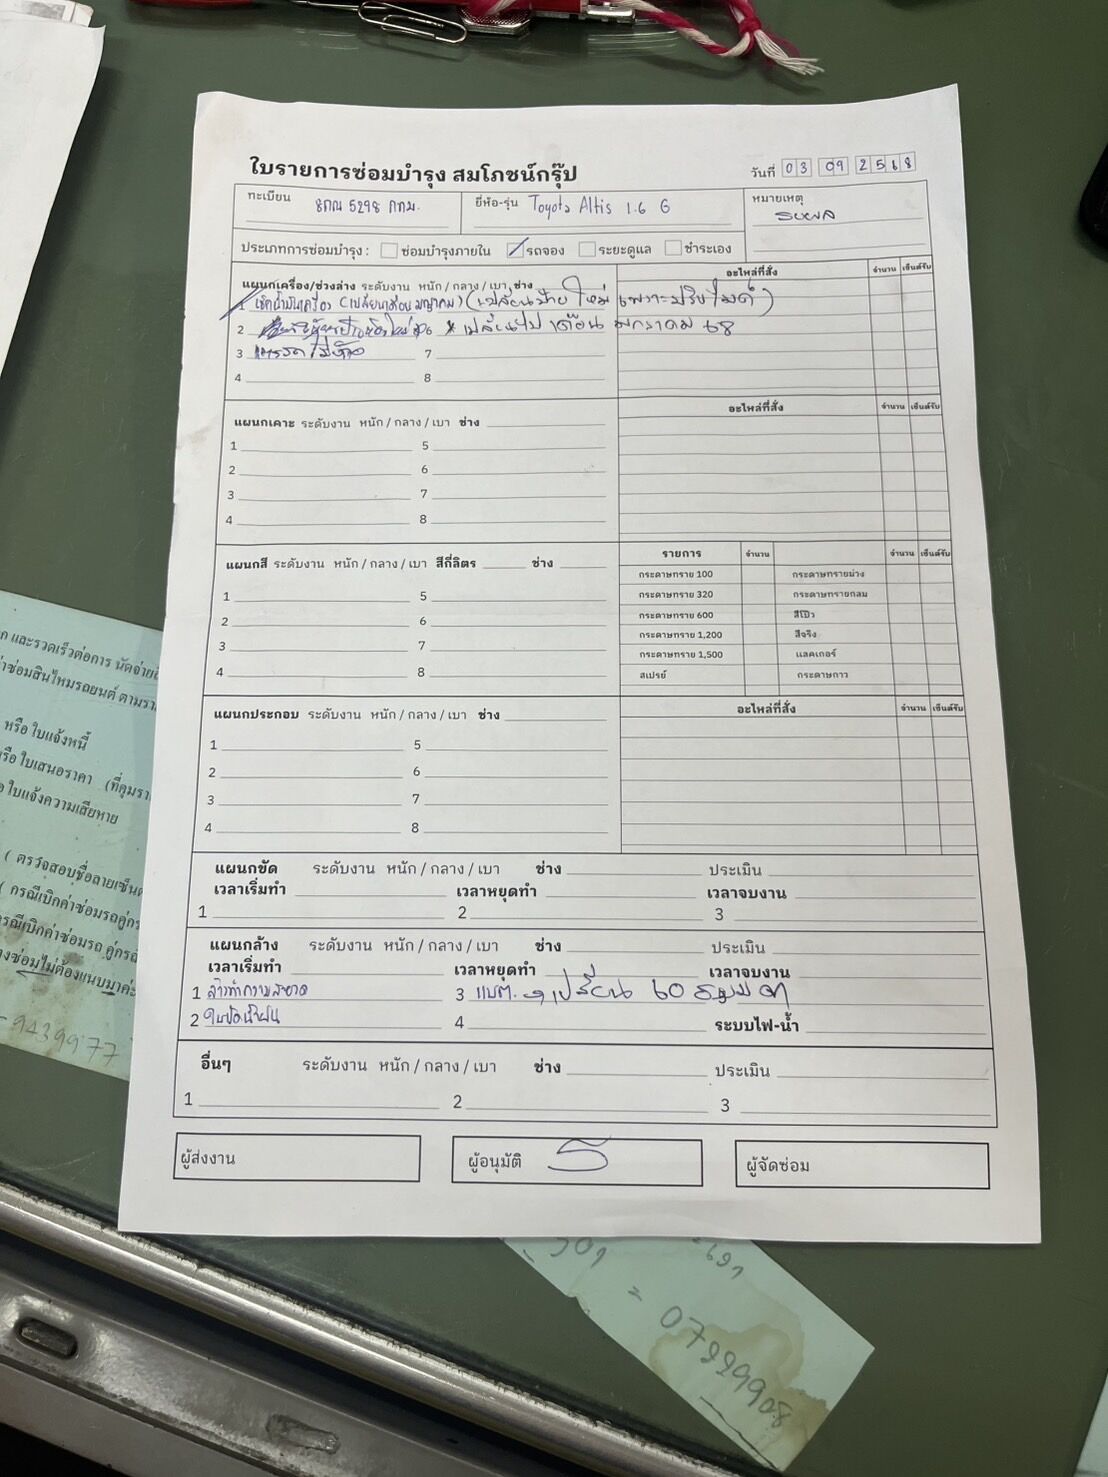 ใบรายการซ่อมบำรุง สมโภชน์กรุ๊ป
วันที่ 03 09 2568
ทะเบียน 8กณ 5298 กทม.
ยี่ห้อ-รุ่น Toyota Altis 1.6 G
หมายเหตุ
ประเภทการซ่อมบำรุง : ซ่อมบำรุงภายใน รถจอง ระยะดูแล ชำระเอง
แผนกเครื่อง/ช่วงล่าง ระดับงาน หนัก / กลาง / เบา ช่าง
อะไหล่ที่สั่ง จำนวน เซ็นต์รับ
1 เช็คน้ำมันเครื่อง (เปลี่ยนป้ายใหม่ เพราะ
2 * เปลี่ยนไป เดือน มกราคม 68
3 7
4 8
แผนกเคาะ ระดับงาน หนัก / กลาง / เบา ช่าง
อะไหล่ที่สั่ง จำนวน เซ็นต์รับ
1 5
2 6
3 7
4 8
แผนกสี ระดับงาน หนัก / กลาง / เบา สีกี่ลิตร ช่าง
รายการ จำนวน จำนวน เซ็นต์รับ
กระดาษทราย 100 กระดาษทรายม่วง
กระดาษทราย 320 กระดาษทรายกลม
กระดาษทราย 600 สีโป๊ว
กระดาษทราย 1,200 สีจริง
กระดาษทราย 1,500 แลคเกอร์
สเปรย์ กระดาษกาว
1 5
2 6
3 7
4 8
แผนกประกอบ ระดับงาน หนัก / กลาง / เบา ช่าง
อะไหล่ที่สั่ง จำนวน เซ็นต์รับ
1 5
2 6
3 7
4 8
แผนกขัด ระดับงาน หนัก / กลาง / เบา ช่าง ประเมิน
เวลาเริ่มทำ เวลาหยุดทำ เวลาจบงาน
1 2 3
แผนกล้าง ระดับงาน หนัก / กลาง / เบา ช่าง ประเมิน
เวลาเริ่มทำ เวลาหยุดทำ เวลาจบงาน
1 ล้างทำความสะอาด 3 แบต. เปลี่ยน
2 4 ระบบไฟ-น้ำ
อื่นๆ ระดับงาน หนัก / กลาง / เบา ช่าง ประเมิน
1 2 3
ผู้ส่งงาน ผู้อนุมัติ ผู้จัดซ่อม
ก และรวดเร็วต่อการ นัดจ่าย
าซ่อมสินไหมรถยนต์ ตาม
หรือ ใบแจ้งหนี้
รือ ใบเสนอราคา (ที่คุม
ใบแจ้งความเสียหาย
( ตรวจสอบชื่อลายเซ็น
( กรณีเบิกค่าซ่อมรถคู่
รณีเบิกค่าซ่อมรถ คู่กรณี
างซ่อมไม่ต้องแนบมาค่ะ
9439977